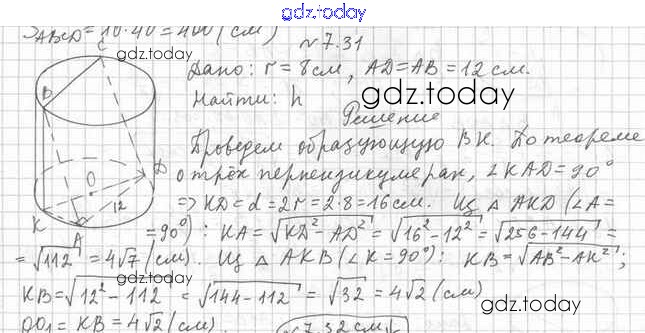 gdz.today
S_ABCD = 10·40 = 400 (см)
№ 7.31
gdz.today
Дано: r = 8 см, AD = AB = 12 см.
Найти: h
gdz.today
Решение
Проведем образующую BK. По теореме
о трёх перпендикулярах, ∠KAD = 90°
⇒ KD = d = 2r = 2·8 = 16 см. Из △ AKD (∠A =
= 90°): KA = √(KD² - AD²) = √(16² - 12²) = √(256 - 144) =
= √112 = 4√7 (см). Из △ AKB (∠K = 90°): KB = √(AB² - AK²);
KB = √(12² - 112) = √(144 - 112) = √32 = 4√2 (см)
gdz.today
OO₁ = KB = 4√2 (см).
C
B
O
D
K
A
12
gdz.today